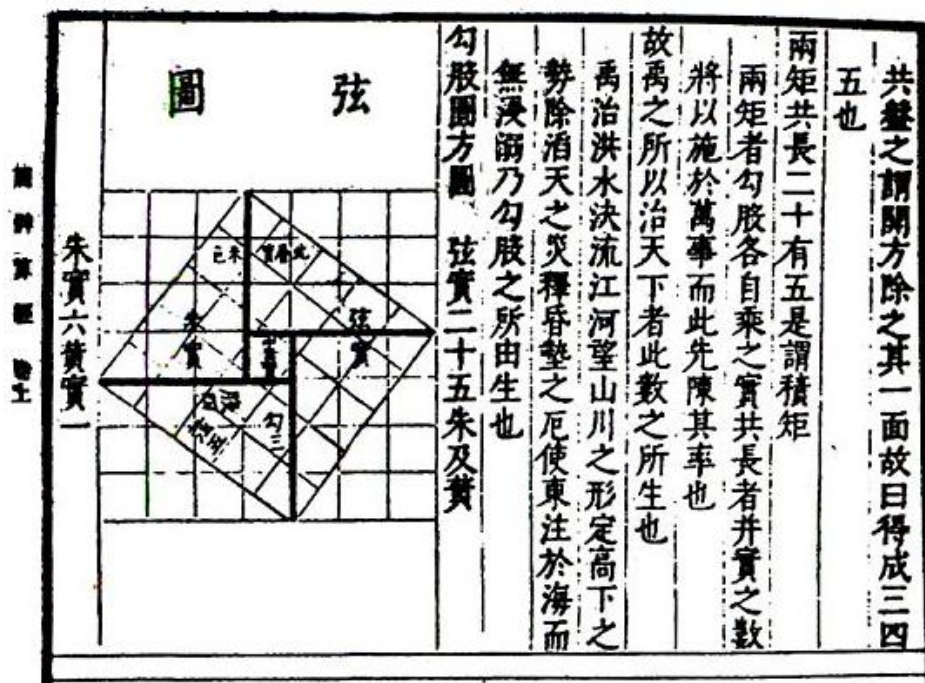 共盤之謂開方除之其一面故曰得成三四
五也
兩矩共長二十有五是謂積矩
兩矩者勾股各自乘之實共長者并實之數
將以施於萬事而此先陳其率也
故禹之所以治天下者此數之所生也
禹治洪水決流江河望山川之形定高下之
勢除滔天之災釋昏墊之厄使東注於海而
無浸溺乃勾股之所由生也
勾股圓方圖 弦實二十五朱及黃
弦圖
弦實
朱實
勾三
朱實六黃實一